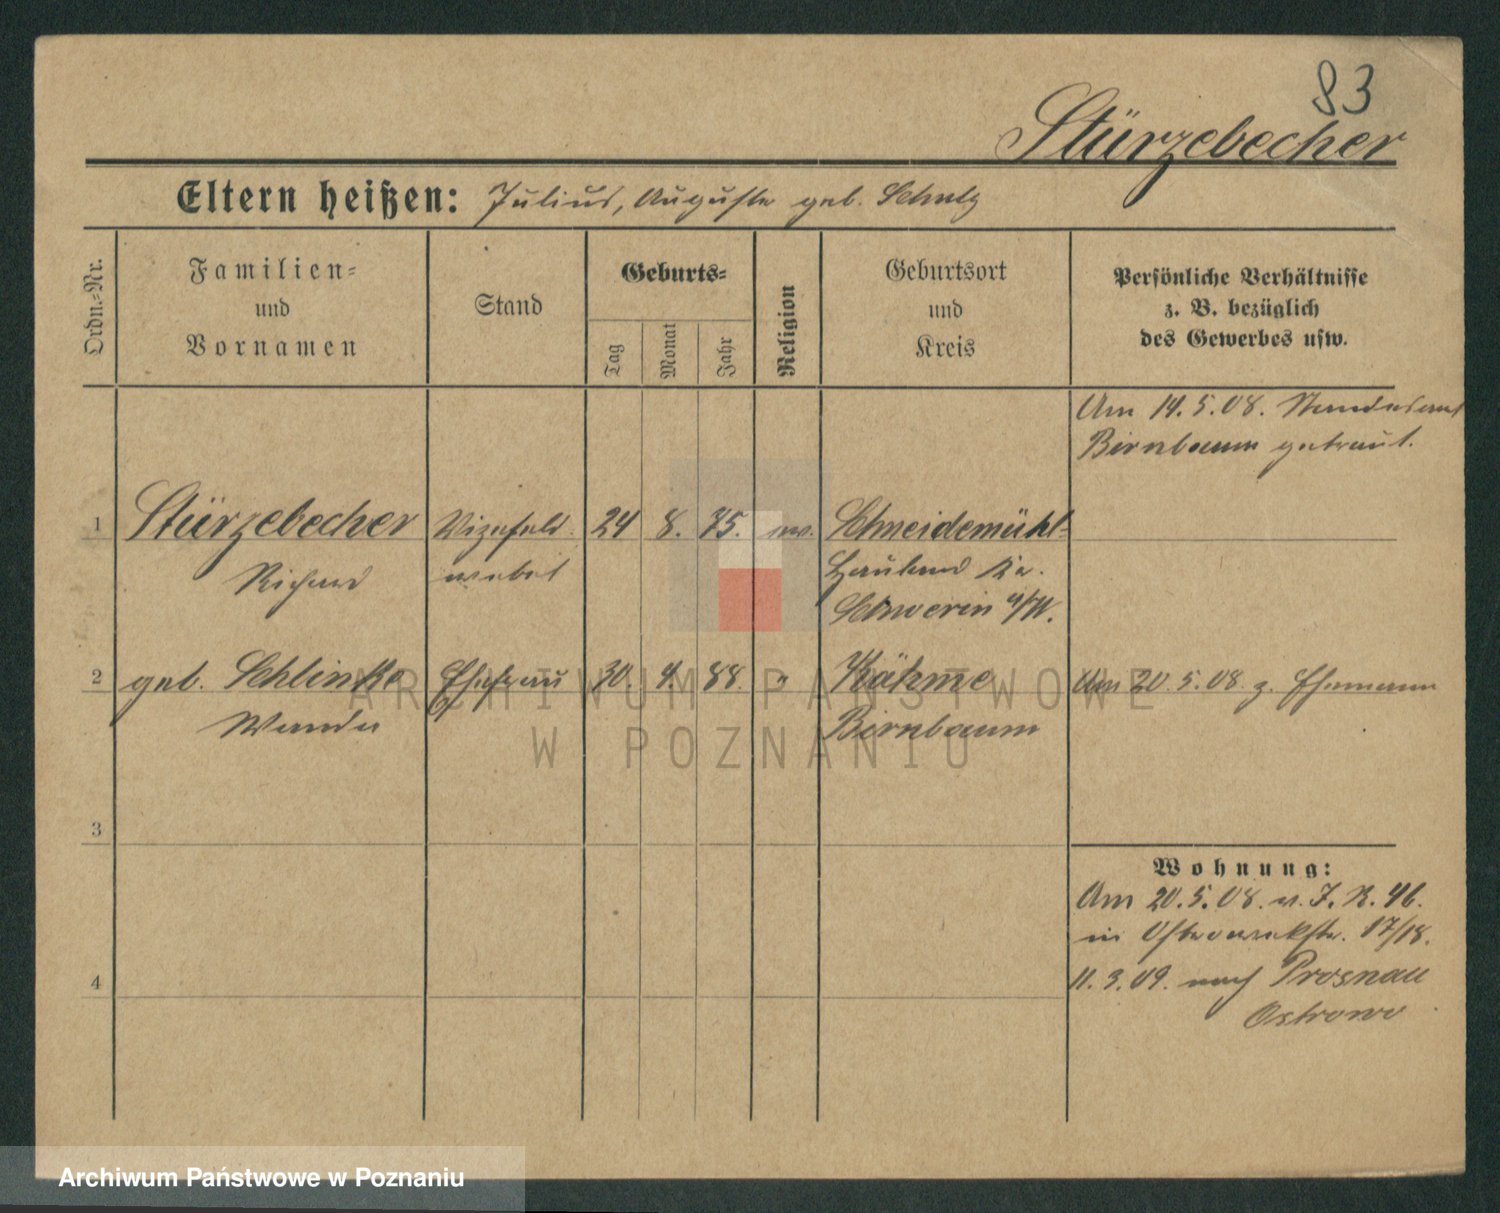 83
Stürzebecher
Eltern heißen: Julius, Auguste geb. Schulz
Ordn.-Nr.
Familien-
und
Vornamen
Stand
Geburts-
Tag
Monat
Jahr
Religion
Geburtsort
und
Kreis
Persönliche Verhältnisse
z. B. bezüglich
des Gewerbes usw.
Am 14.5.08. Standesamt
Birnbaum getraut.
1 Stürzebecher Vizefeld- 24 8. 75. ev. Schneidemühl-
Richard webel Hauland Kr.
Schwerin a/W.
2 geb. Schlinke Ehefrau 30. 4. 88. " Kähme Am 20.5.08 z. Ehemann
Wanda Birnbaum
3
Wohnung:
Am 20.5.08. v. J. R. 46.
in 17/18.
4
11.3.09. nach Prosnau
Ostrowo
ARCHIWUM PAŃSTWOWE
W POZNANIU
Archiwum Państwowe w Poznaniu